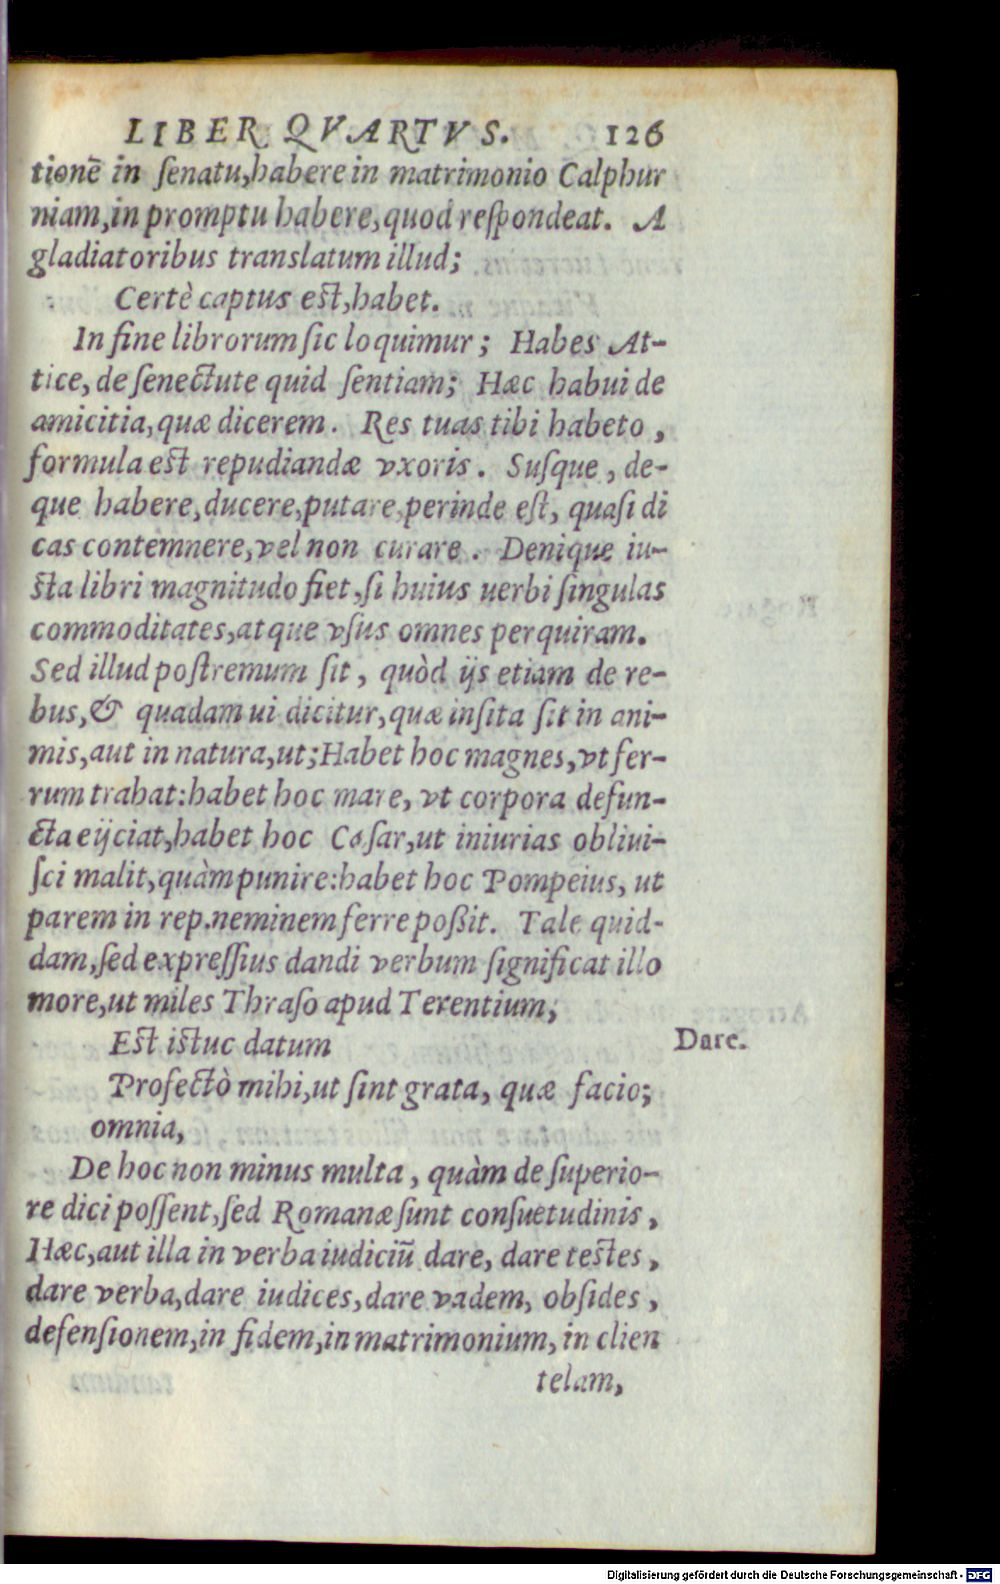 LIBER QVARTVS. 126
tionē in ſenatu,habere in matrimonio Calphur
niam,in promptu habere,quod reſpondeat. A
gladiatoribus translatum illud;
Certè captus eſt,habet.
In fine librorum ſic loquimur; Habes At-
tice, de ſenectute quid ſentiam; Hæc habui de
amicitia,quæ dicerem. Res tuas tibi habeto,
formula eſt repudiandæ vxoris. Suſque, de-
que habere,ducere,putare perinde eſt, quaſi di
cas contemnere,vel non curare. Denique iu-
ſta libri magnitudo fiet,ſi huius uerbi ſingulas
commoditates,atque vſus omnes perquiram.
Sed illud poſtremum ſit, quòd ijs etiam de re-
bus,& quadam ui dicitur,quæ inſita ſit in ani-
mis,aut in natura,ut;Habet hoc magnes,vt fer-
rum trahat:habet hoc mare, vt corpora defun-
cta eijciat,habet hoc Cæſar,ut iniurias obliui-
ſci malit,quàm punire:habet hoc Pompeius, ut
parem in rep.neminem ferre poßit. Tale quid-
dam,ſed expreſſius dandi verbum ſignificat illo
more,ut miles Thraſo apud Terentium;
Eſt iſtuc datum
Dare.
Profectò mihi,ut ſint grata, quæ facio;
omnia,
De hoc non minus multa, quàm de ſuperio-
re dici poſſent,ſed Romanæ ſunt conſuetudinis,
Hæc,aut illa in verba iudiciū dare, dare teſtes,
dare verba,dare iudices,dare vadem, obſides,
defenſionem,in fidem,in matrimonium, in clien
telam,
Digitalisierung gefördert durch die Deutsche Forschungsgemeinschaft - DFG